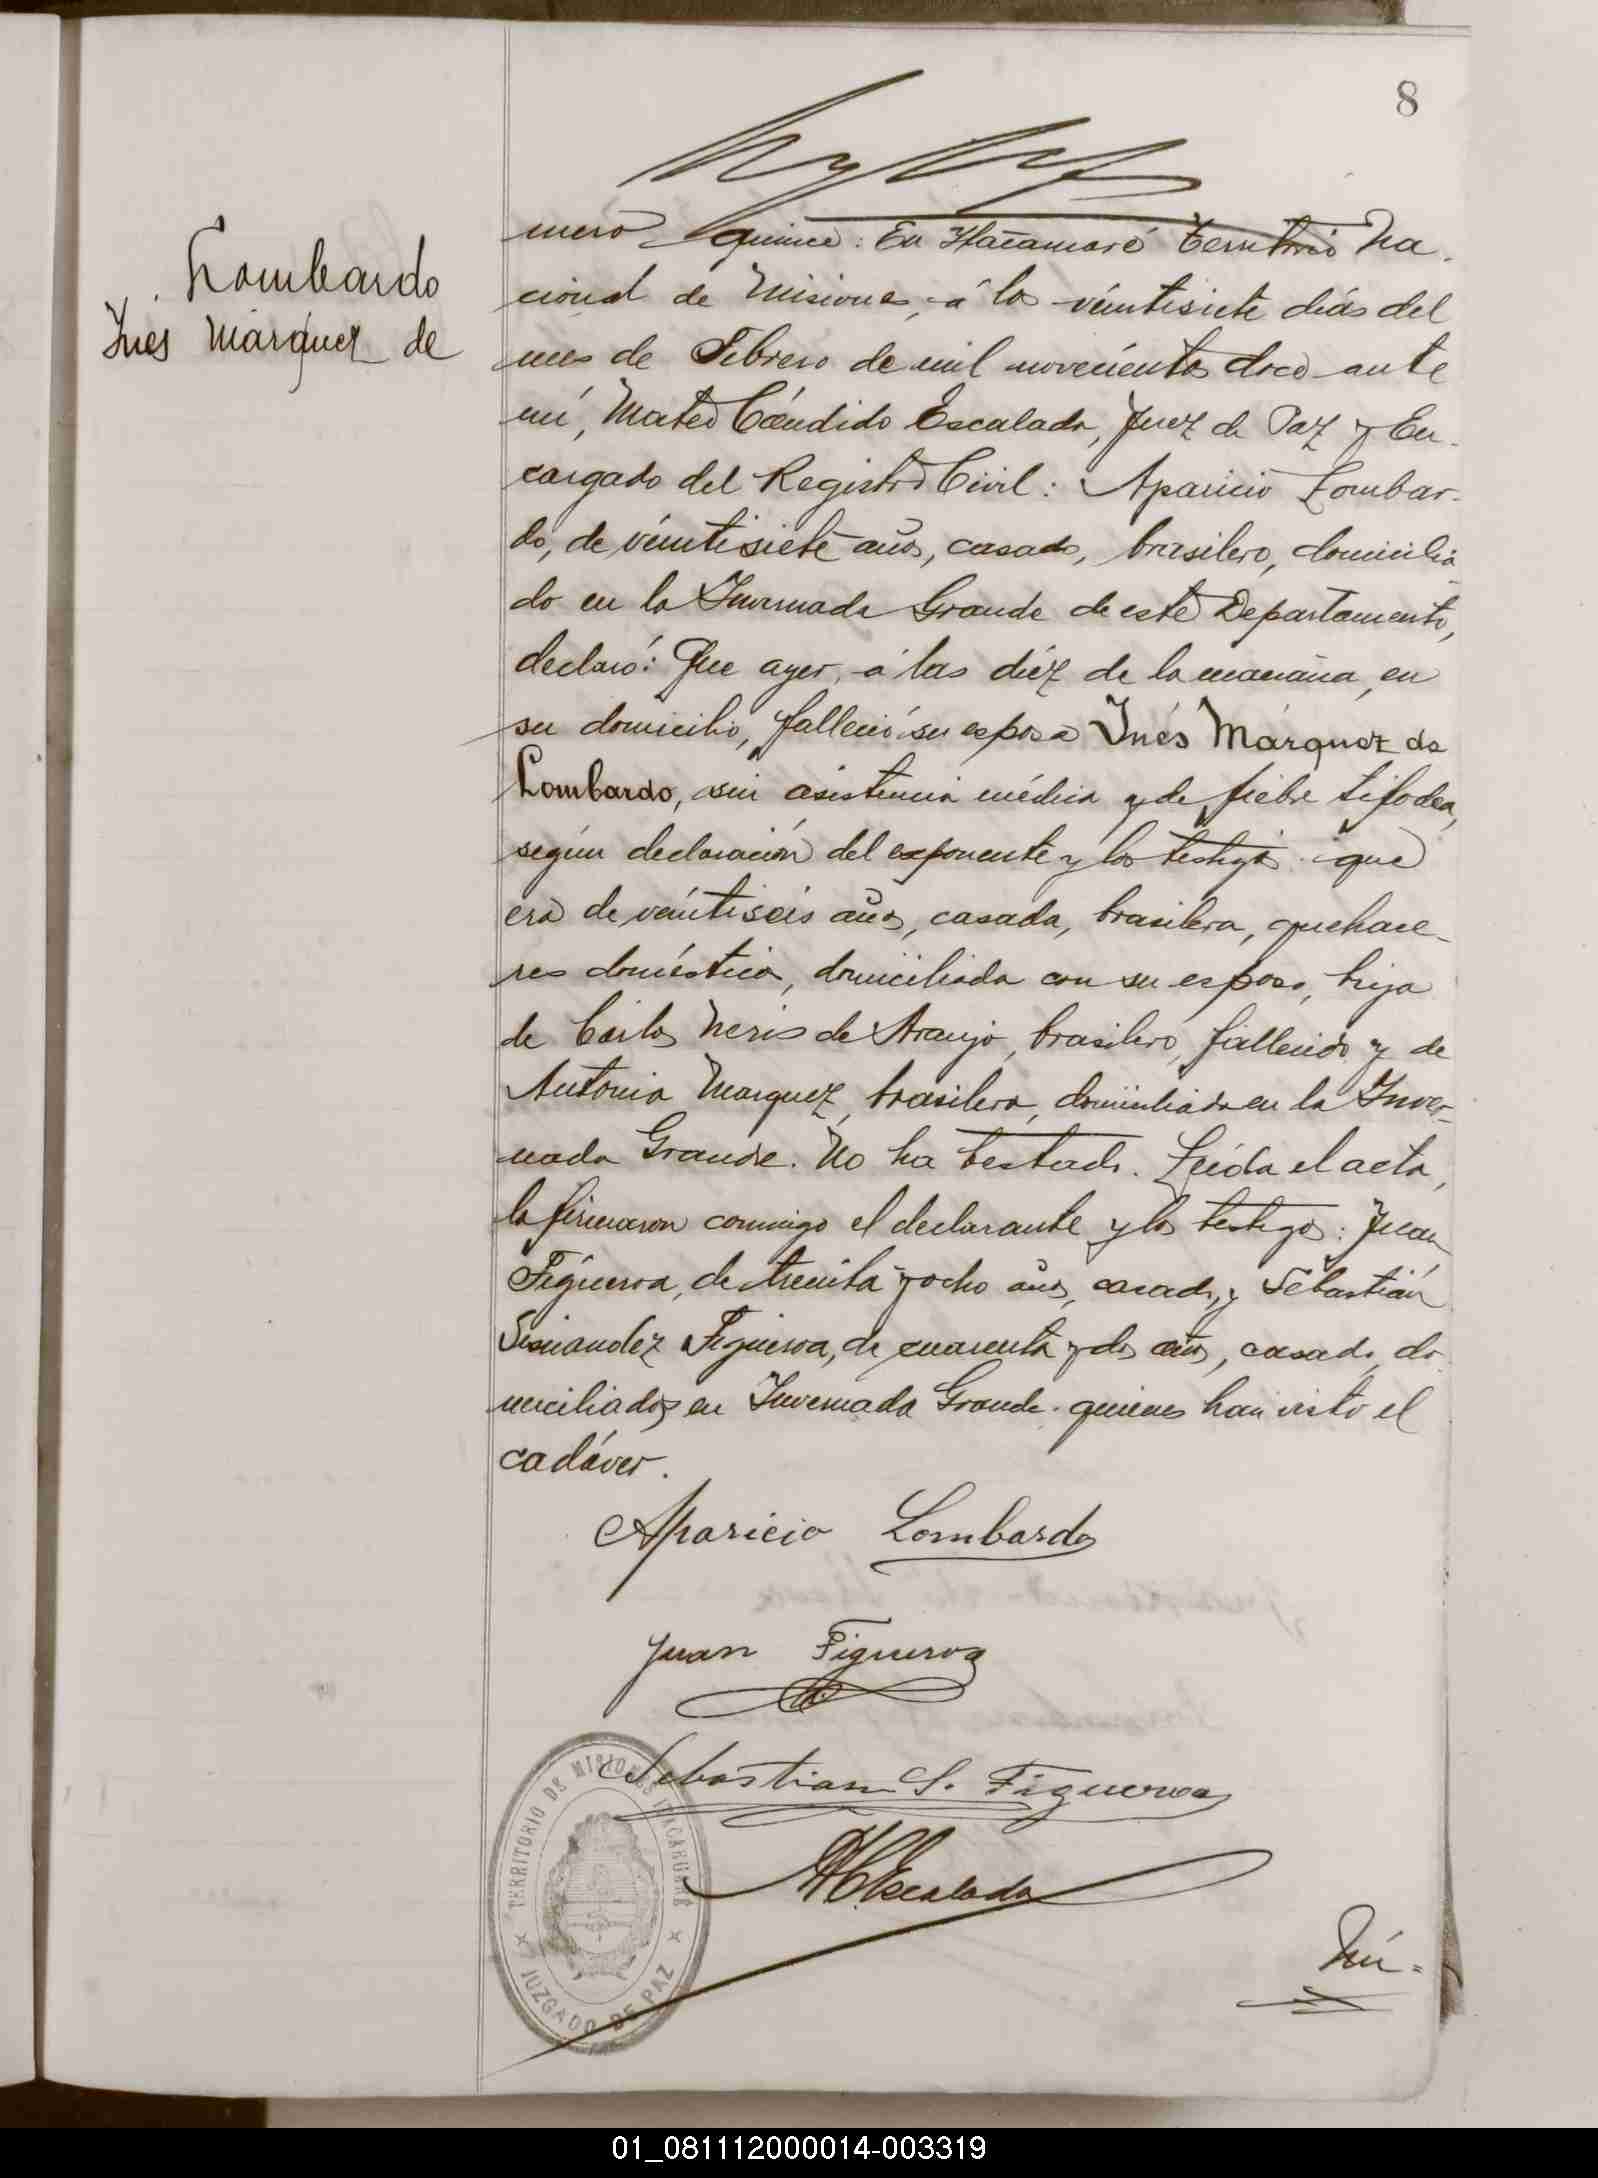 8
Lombardo
Inés Márquez de
mero quince: En Itacaruaré Territorio Na-
cional de Misiones, á los veintisiete días del
mes de Febrero de mil novecientos doce ante
mí, Mateo Cándido Escalada, Juez de Paz y En-
cargado del Registro Civil: Aparicio Lombar-
do, de veintisiete años, casado, brasilero, domicilia
do en la Invernada Grande de este Departamento,
declaró: Que ayer, á las diez de la mañana, en
su domicilio, falleció su esposa Inés Márquez de
Lombardo, sin asistencia médica y de fiebre tifodea,
según declaración del exponente y los testigos que
era de veintiseis años, casada, brasilera, quehace-
res domésticos, domiciliada con su esposo, hija
de Carlos Neris de Araujo, brasilero, fallecido y de
Antonia Marquez, brasilera, domiciliada en la Inver-
nada Grande. No ha testado. Leída el acta,
la firmaron conmigo el declarante y los testigos: Juan
Figueroa, de treinta y ocho años, casado, y Sebastián
Sisnandez Figueroa, de cuarenta y dos años, casado, do
miciliados en Invernada Grande quienes han visto el
cadáver.
Aparicio Lombardo
Juan Figueroa
Sebastian S. Figueroa
MCEscalada
TERRITORIO DE MISIONES ITACARUARÉ
JUZGADO DE PAZ
Nú-
01_081112000014-003319